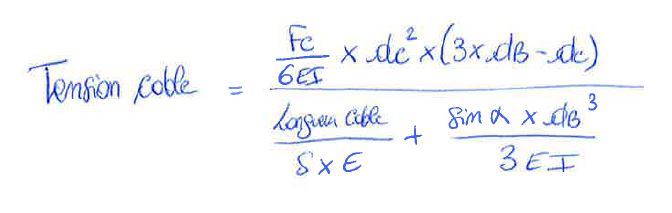 Tension cable = Fc/6EI × dc² × (3 × dB - dc)
Longueur cable/S × E + sin α × dB³/3EI